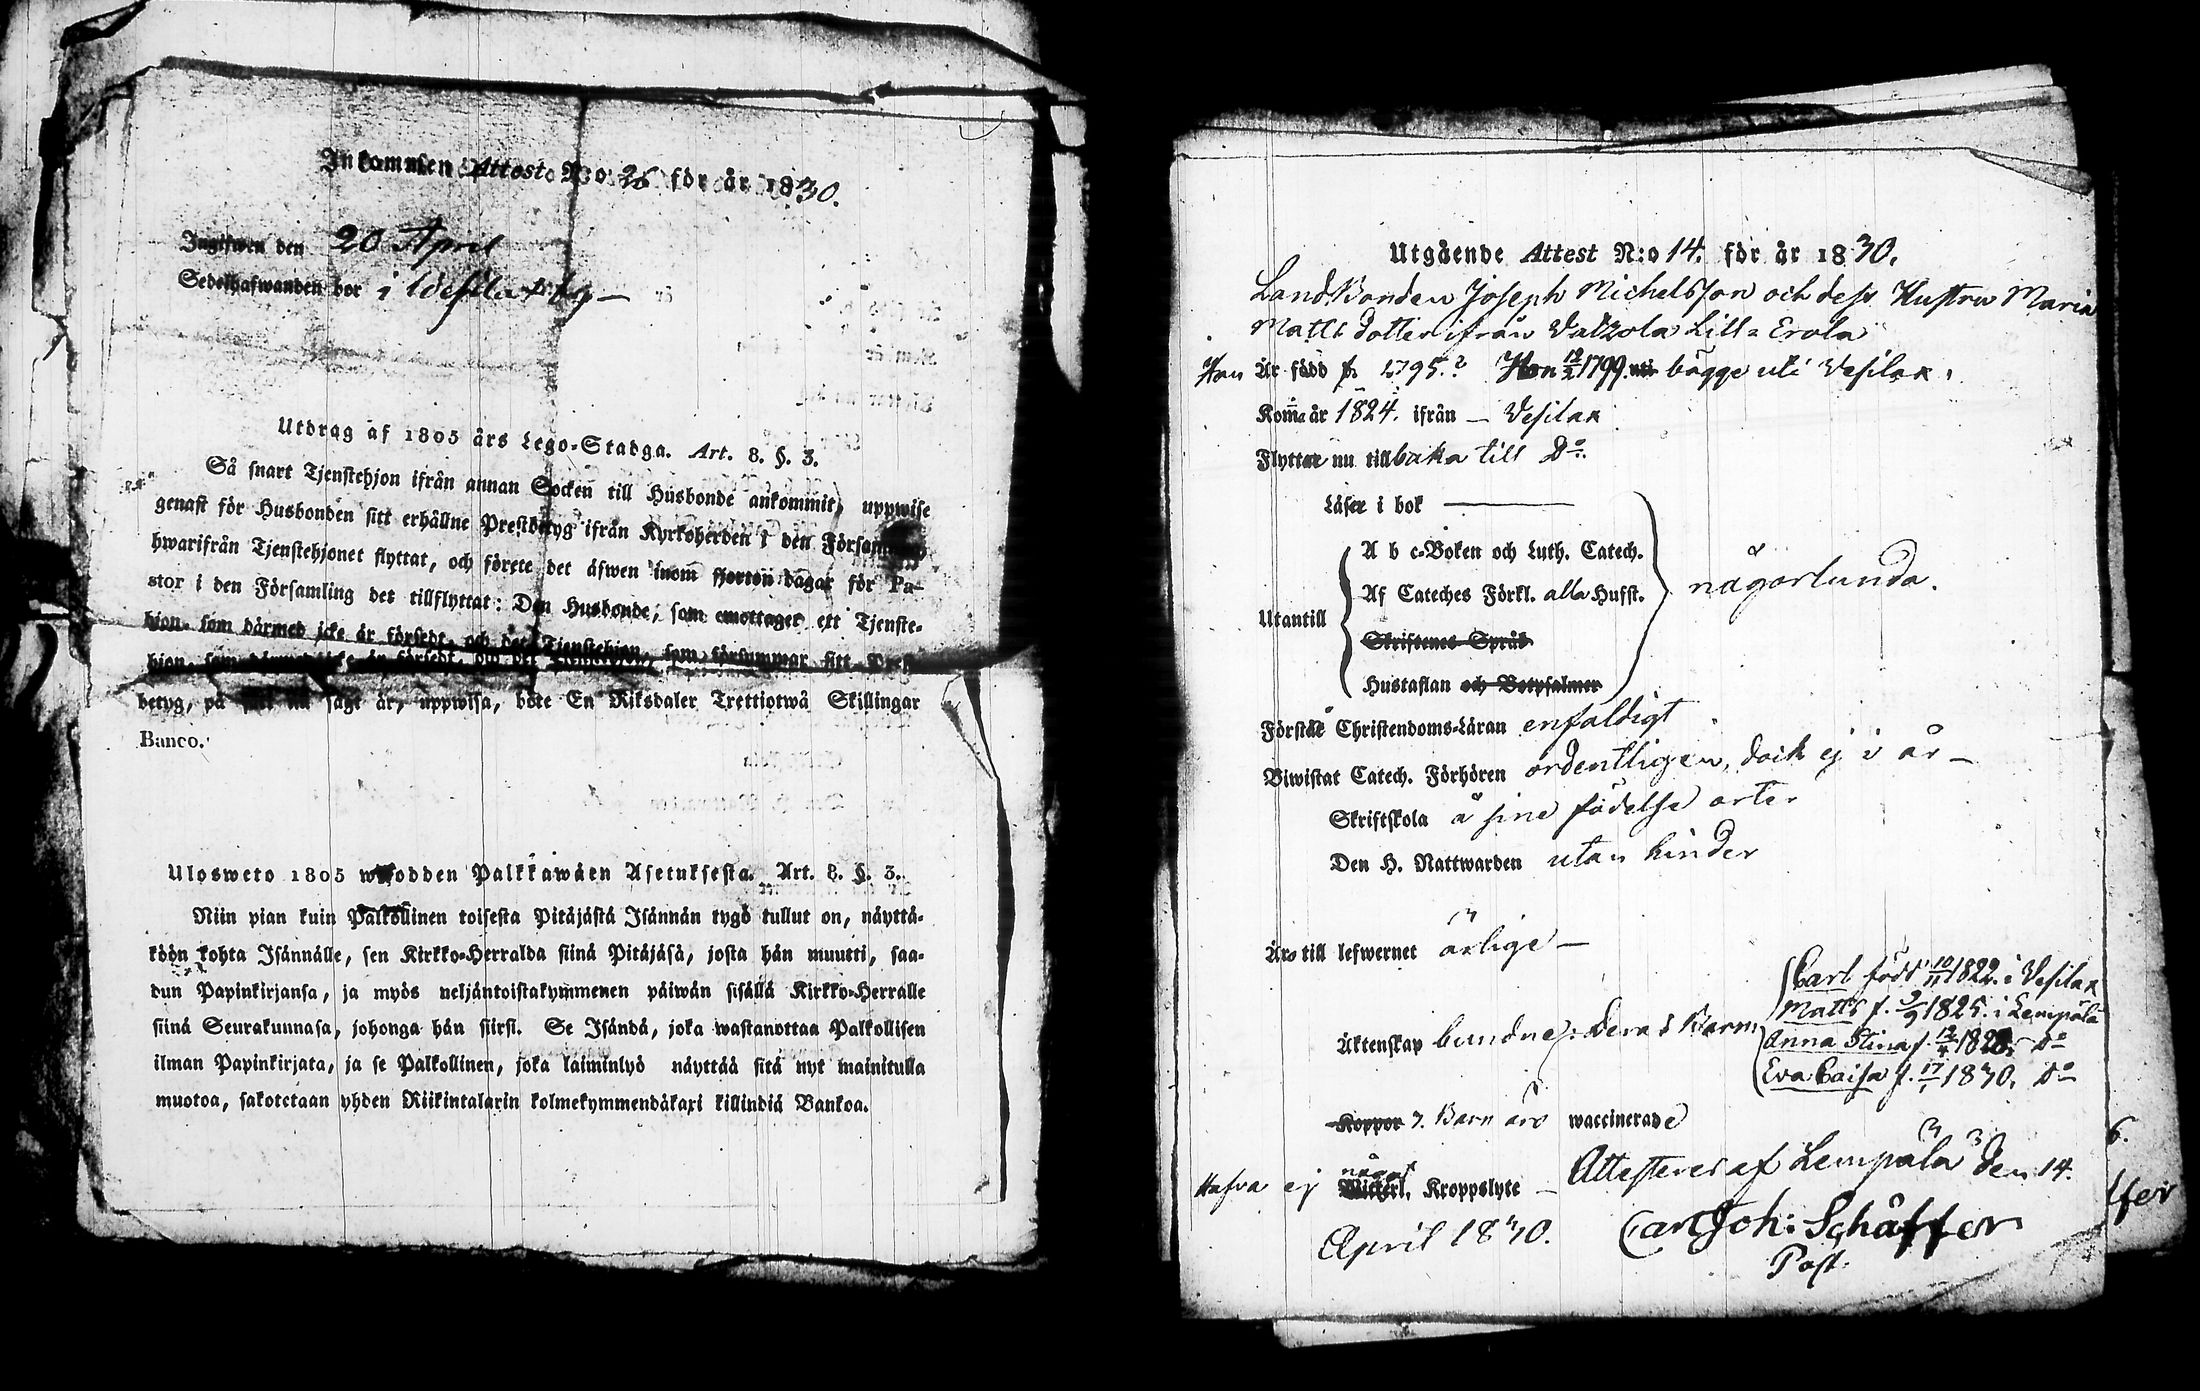 Inkommen Attest N:o 26 för år 1830.
Ingifwen den 20 April
Sedelhafwanden bor i Wesilax by –
Utdrag af 1805 års Lego-Stadga. Art. 8. §. 3.
Så snart Tjenstehjon ifrån annan Socken till Husbonde ankommit, uppwise
genast för Husbonden sitt erhållne Prestbetyg ifrån Kyrkoherden i den Församling
hwarifrån Tjenstehjonet flyttat, och förete det äfwen inom fjorton dagar för Pa-
stor i den Församling det tillflyttat: Den Husbonde, som emottager ett Tjenste-
hjon, som därmed icke är försedt, och det Tjenstehjon, som försummar sitt Prest-
betyg, på sätt nu sagt är, uppwisa, böte En Riksdaler Trettiotwå Skillingar
Banco.
Ulosweto 1805 wuodden Palkkawäen Asetuksesta. Art. 8. §. 3.
Niin pian kuin Palkollinen toisesta Pitäjästä Isännän tygö tullut on, näyttä-
köön kohta Isännälle, sen Kirkko-Herralda siinä Pitäjäsä, josta hän muutti, saa-
dun Papinkirjansa, ja myös neljäntoistakymmenen päiwän sisällä Kirkko-Herralle
siinä Seurakunnasa, johonga hän siirsi. Se Isändä, joka wastanottaa Palkollisen
ilman Papinkirjata, ja se Palkollinen, joka laiminlyö näyttää sitä nyt mainitulla
muotoa, sakotetaan yhden Riikintalarin kolmekymmendäkaxi killindiä Bankoa.
Utgående Attest N:o 14. för år 1830.
LandBonden Joseph Michelsson och dess Hustru Maria
Matts dotter ifrån Valzola Lill-Erola
Han Är född f. 1795.? Hon 12/2 1799. bägge uti Vesilax.
Komne år 1824. ifrån – Vesilax
Flytta nu tillbaka till Do.
Läser i bok ———
Utantill
A b c-Boken och Luth. Catech.
Af Cateches Förkl. alla Hufst.
Skriftenes Språk
Hustaflan och Botpsalmer
någorlunda.
Förstå Christendoms-Läran enfaldigt
Biwistat Catech. Förhören ordentligen, dock ej i år –
Skriftskola å sine födelse orter
Den H. Nattwarden utan hinder
Äro till lefwernet ärlige –
Äktenskap bundne: Deras Barn
Carl född 10/11 1822. i Vesilax
Matts f. 9/9 1825. i Lempäla
Anna Stina f. 12/4 1828. Do
Eva Caisa f. 17/1 1830. Do
Koppor 3. Barn äro waccinerade
Hafva ej något Kroppslyte – Attesteras af Lempäla den 14.
April 1830. Carl Joh: Schäffer
Past.
6.
ffer